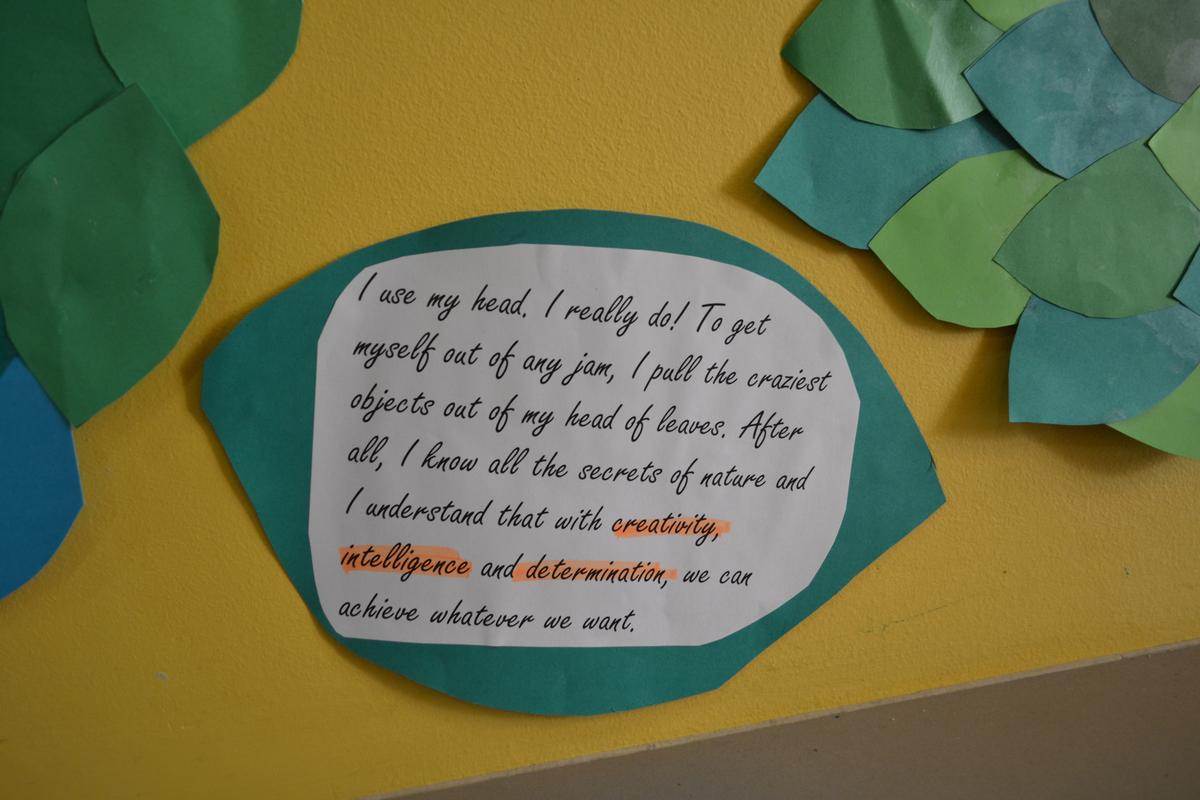 I use my head. I really do! To get
myself out of any jam, I pull the craziest
objects out of my head of leaves. After
all, I know all the secrets of nature and
I understand that with creativity,
intelligence and determination, we can
achieve whatever we want.